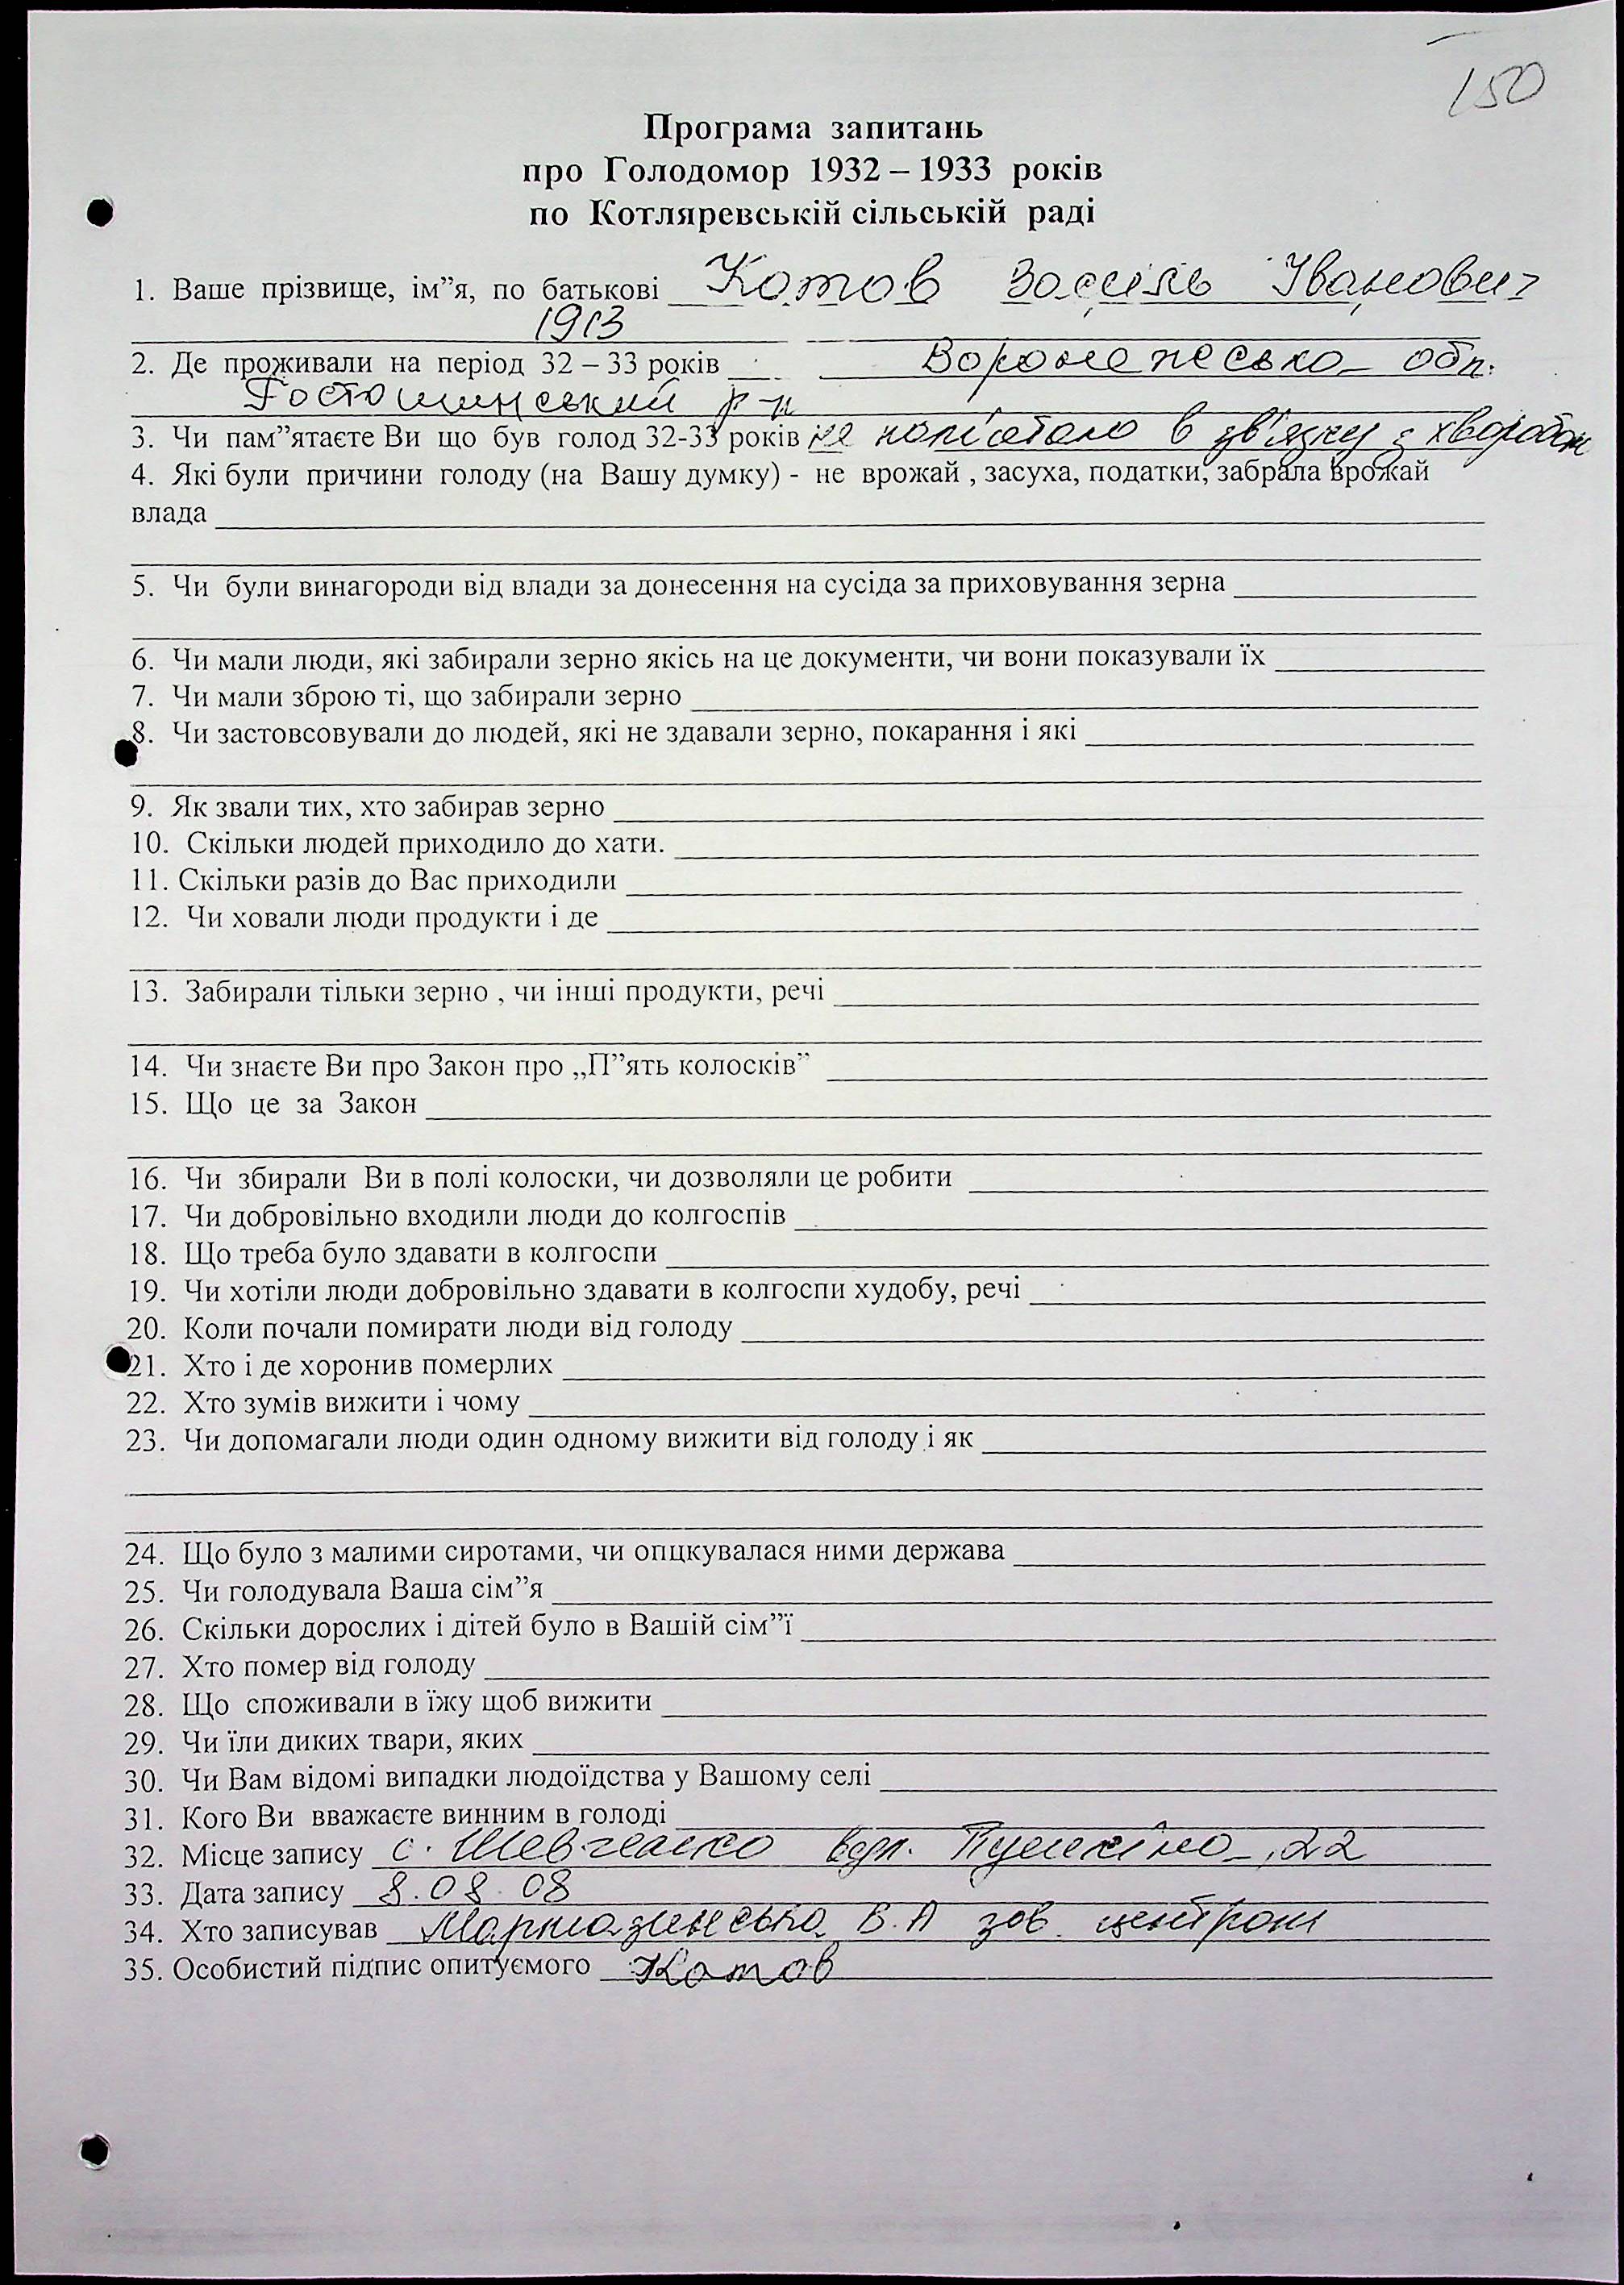 150
Програма запитань
про Голодомор 1932 – 1933 років
по Котляревській сільській раді
1. Ваше прізвище, ім”я, по батькові Котов Василь Іванович
1913
2. Де проживали на період 32 – 33 років Воронежська обл.
р-н
3. Чи пам”ятаєте Ви що був голод 32-33 років не в зв'язку з хворобою
4. Які були причини голоду (на Вашу думку) - не врожай , засуха, податки, забрала врожай
влада
5. Чи були винагороди від влади за донесення на сусіда за приховування зерна
6. Чи мали люди, які забирали зерно якісь на це документи, чи вони показували їх
7. Чи мали зброю ті, що забирали зерно
8. Чи застовсовували до людей, які не здавали зерно, покарання і які
9. Як звали тих, хто забирав зерно
10. Скільки людей приходило до хати.
11. Скільки разів до Вас приходили
12. Чи ховали люди продукти і де
13. Забирали тільки зерно , чи інші продукти, речі
14. Чи знаєте Ви про Закон про „П”ять колосків”
15. Що це за Закон
16. Чи збирали Ви в полі колоски, чи дозволяли це робити
17. Чи добровільно входили люди до колгоспів
18. Що треба було здавати в колгоспи
19. Чи хотіли люди добровільно здавати в колгоспи худобу, речі
20. Коли почали помирати люди від голоду
21. Хто і де хоронив померлих
22. Хто зумів вижити і чому
23. Чи допомагали люди один одному вижити від голоду і як
24. Що було з малими сиротами, чи опцкувалася ними держава
25. Чи голодувала Ваша сім”я
26. Скільки дорослих і дітей було в Вашій сім”ї
27. Хто помер від голоду
28. Що споживали в їжу щоб вижити
29. Чи їли диких твари, яких
30. Чи Вам відомі випадки людоїдства у Вашому селі
31. Кого Ви вважаєте винним в голоді
32. Місце запису с. Шевченко вул. Пушкіна, 22
33. Дата запису 8.08.08
34. Хто записував В.А зав. центром
35. Особистий підпис опитуємого Котов